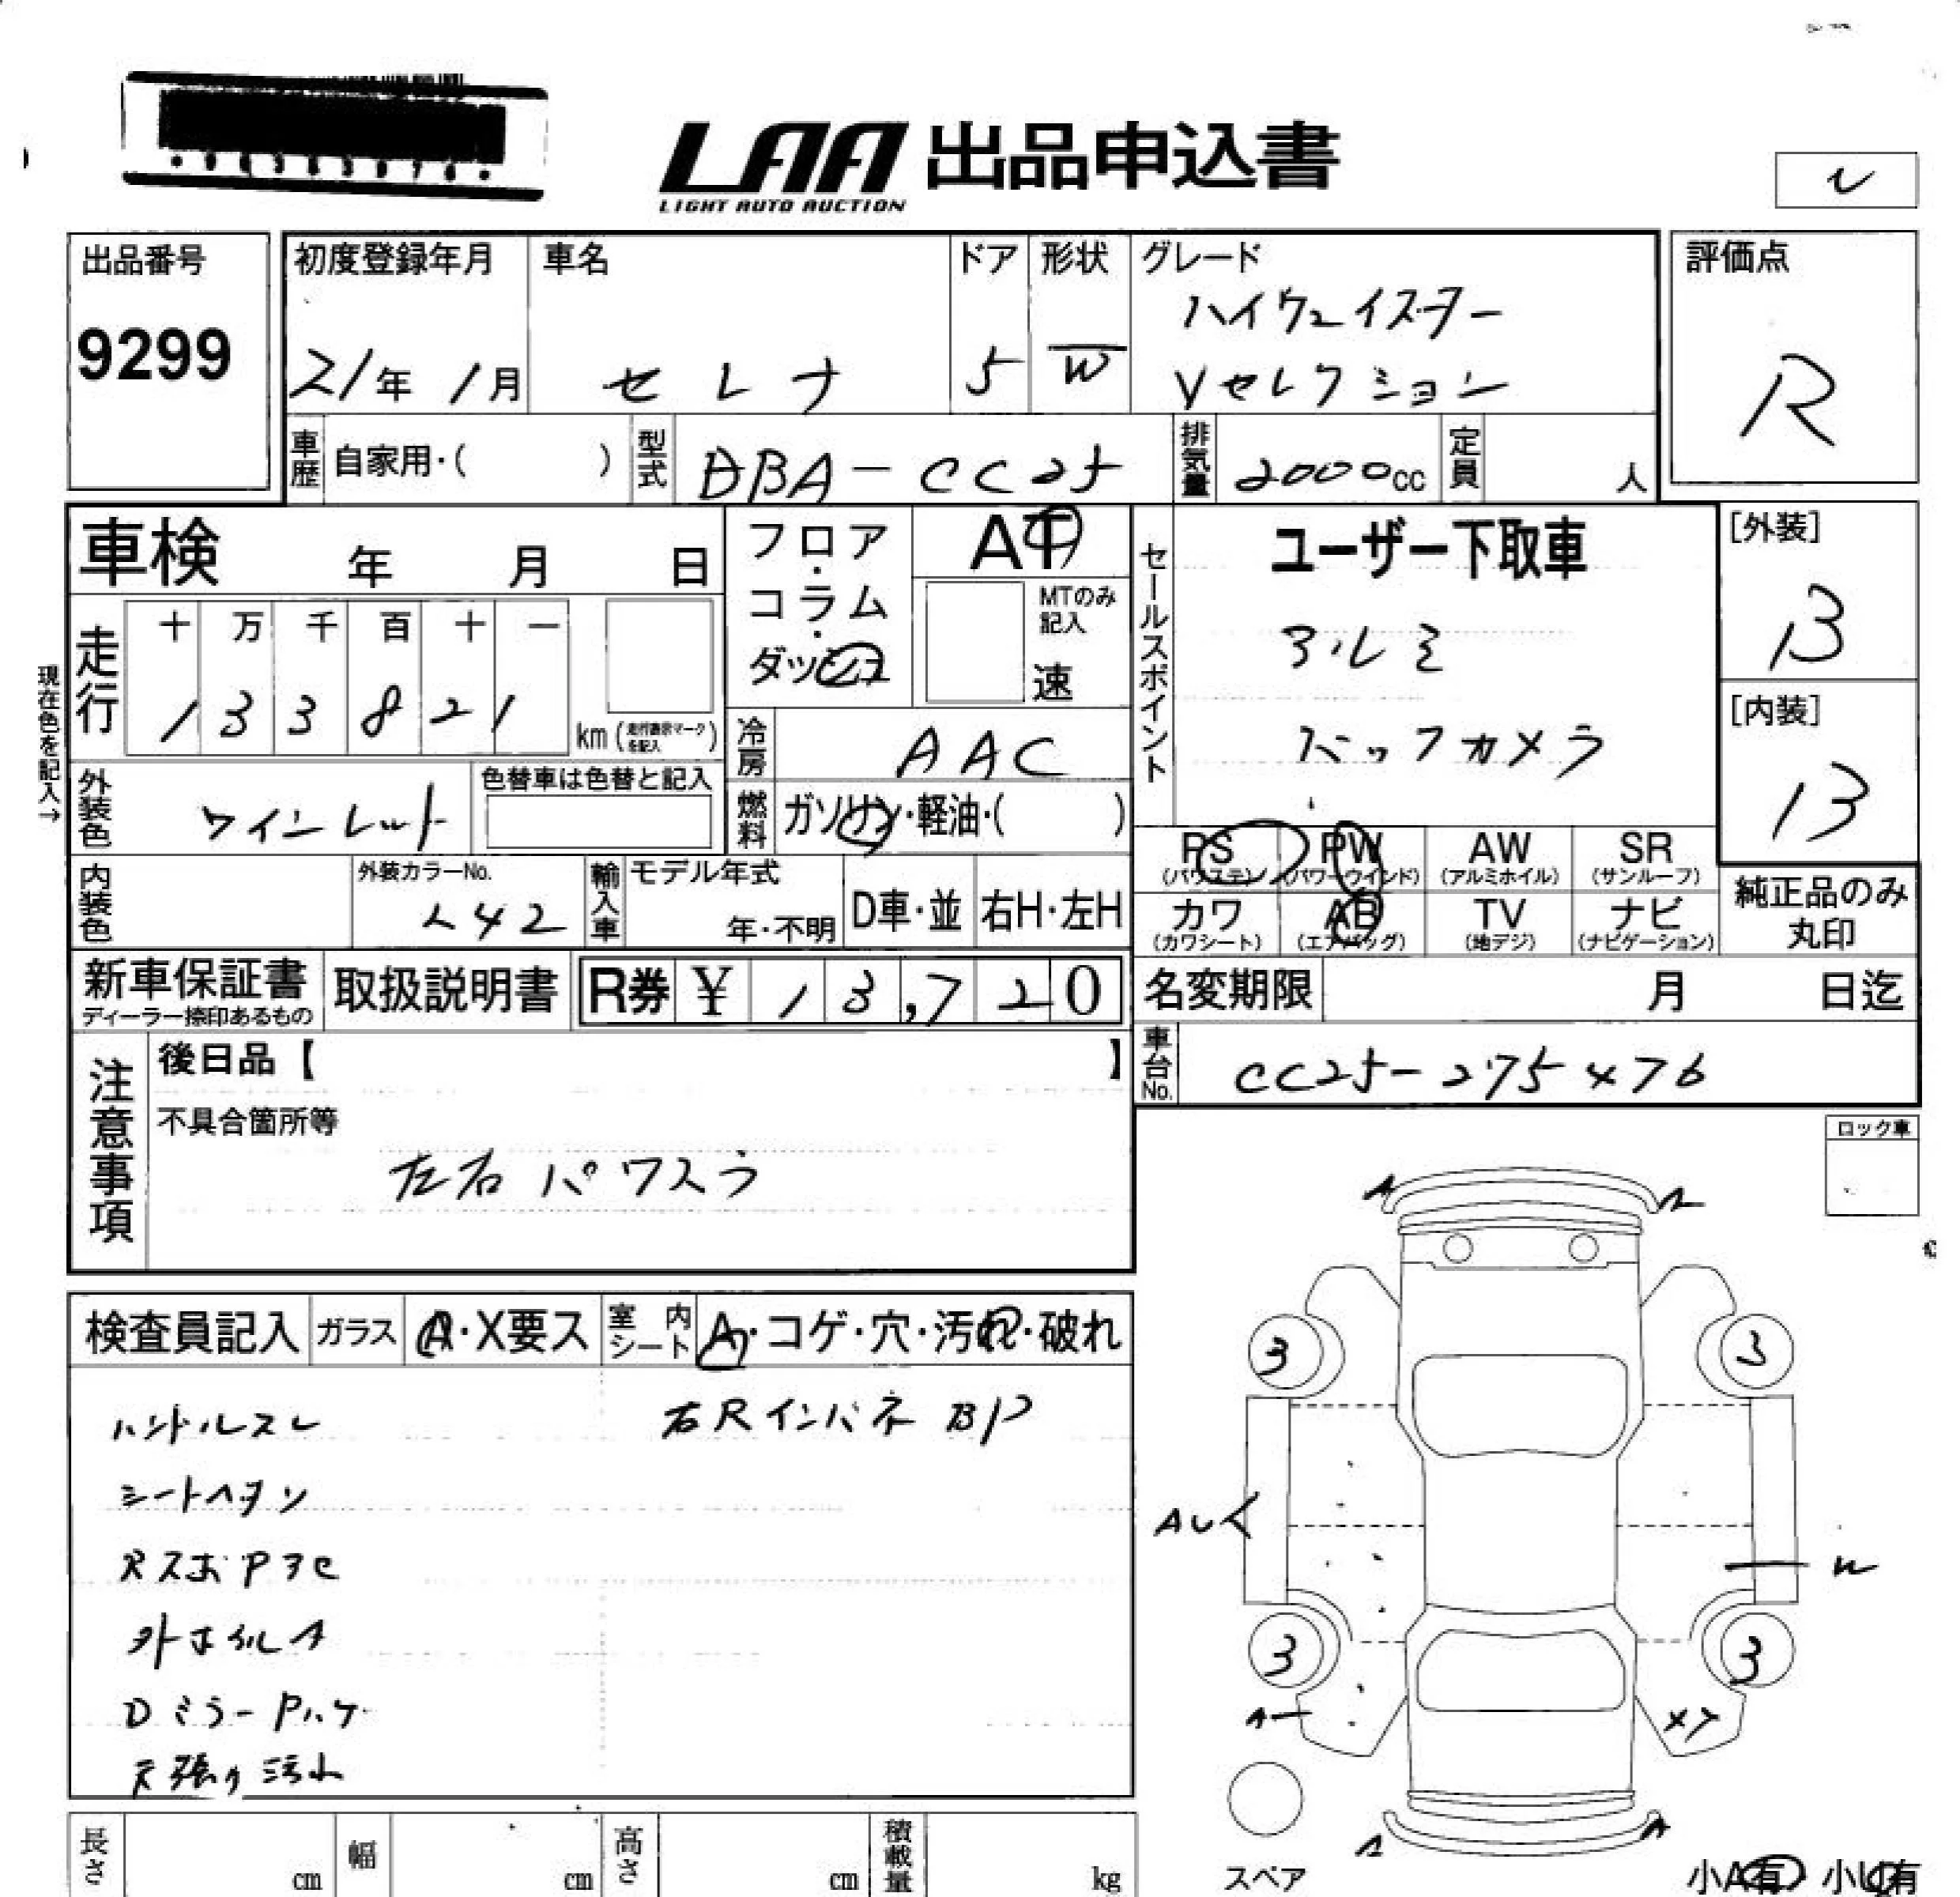 LAA 出品申込書
LIGHT AUTO AUCTION
出品番号
9299
初度登録年月
21年 1月
車名
セレナ
ドア
5
形状
W
グレード
ハイウェイスター
Vセレクション
評価点
R
車歴
自家用・( )
型式
DBA-CC25
排気量
2000cc
定員
人
車検 年 月 日
現在色を記入→
走行
十 万 千 百 十 一
1 3 3 8 2 1
km
フロア・コラム・ダッシュ
AT
MTのみ記入
速
冷房
AAC
燃料
ガソリン・軽油・( )
セールスポイント
ユーザー下取車
アルミ
バックカメラ
[外装]
B
[内装]
B
外装色
ワインレッド
色替車は色替と記入
内装色
外装カラーNo.
L42
輸入車
モデル年式
年・不明
D車・並
右H・左H
PS
(パワステ)
PW
(パワーウインド)
AW
(アルミホイル)
SR
(サンルーフ)
カワ
(カワシート)
AB
(エアバッグ)
TV
(地デジ)
ナビ
(ナビゲーション)
純正品のみ
丸印
新車保証書
ディーラー捺印あるもの
取扱説明書
R券 ¥ 13,720
名変期限 月 日迄
車台No.
CC25-275476
注意事項
後日品【 】
不具合箇所等
左右パワスラ
ロック車
検査員記入
ガラス
A・X要ス
室内シート
A・コゲ・穴・汚れ・破れ
ハンドルスレ
右Rインパネ BP
シートヘタリ
RスポPアセ
外ホイルA
DミラーPハゲ
天張り汚れ
A
3
3
AU
3
3
A
A
スペア
小A有 小U有
長さ
cm
幅
cm
高さ
cm
積載量
kg